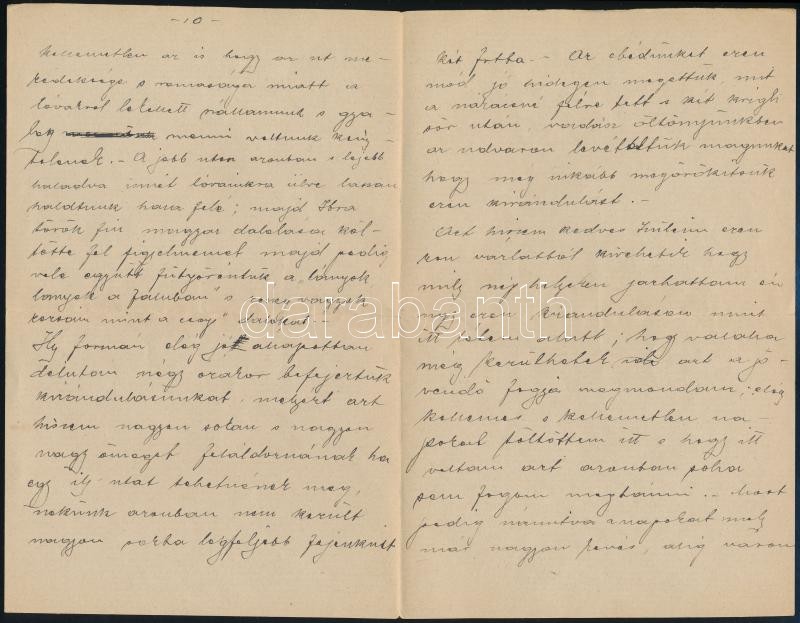 - 10 -
kellemetlen az is hogy az út me-
redeksége s romasága miatt a
lóvakról le kellett szállanunk s gya-
log menni voltunk kény-
telenek. - A jobb uton azonban s lejebb
haladva ismét lóvainkra ülve lassan
haldtunk haza felé; majd Ibra
török fiu magyar dalolása köl-
tötte fel figjelmemet majd pedig
vele együtt fütyörésztük a "lányok
lanyok a faluban" s
mint a dalokat -
Ily forman elég jó állapotban
délutan négy orakor befejeztük
kirándulásunkat, melyért azt
hiszem nagyon sokan s nagyon
nagy ömeget feláldoznának ha
egy ilj utat tehetnének meg,
nekünk azonban nem került
nagyon sokba legfeljebb fejenkint
két frtba. - Az ebédünket ezen
mód jó hidegen megettük, mit
a nazarené félre tett s két krigli
sör után, vadász öltönyünkben
az udvaron levétettük magunkat
hogy meg inkább megörökitsük
ezen kirándulást. -
Azt hiszem kedves Szüleim ezen
kis vázlatból kivehetik hogy
mily nép helyzen jarhattam én
ugy ezen kirandulásom mint
itt létem alatt; hogy valaha
még kerülhetek ide azt a jö-
vendő fogja megmondani; elég
kellemes s kellemetlen na-
pokat töltöttem itt s hogy itt
voltam azt azonban soha
sem fogom megbánni. - Most
pedig számitva a napokat mely
már nagyon kevés, alig várom
darabanth